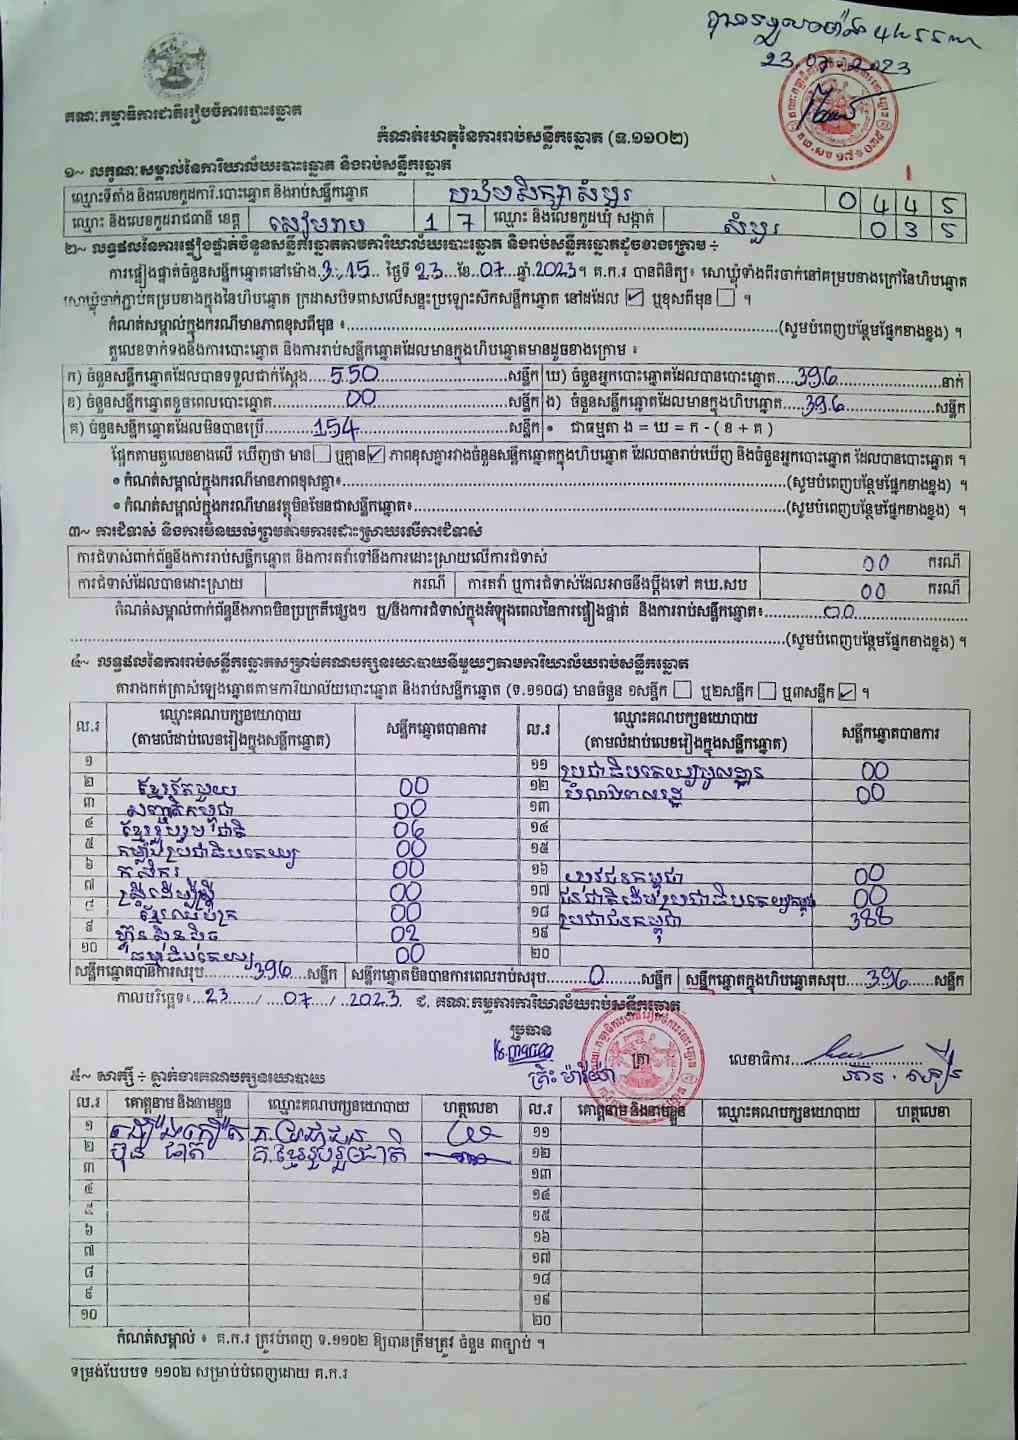 23.07.2023
គណៈកម្មាធិការជាតិរៀបចំការបោះឆ្នោត
កំណត់ហេតុនៃការរាប់សន្លឹកឆ្នោត (ទ.១១០២)
១~ លក្ខណៈសម្គាល់នៃការិយាល័យបោះឆ្នោត និងរាប់សន្លឹកឆ្នោត
ឈ្មោះទីតាំង និងលេខកូដការិ.បោះឆ្នោត និងរាប់សន្លឹកឆ្នោត បឋមសិក្សាសំបួរ 0445
ឈ្មោះ និងលេខកូដរាជធានី ខេត្ត សៀមរាប 17 ឈ្មោះ និងលេខកូដឃុំ សង្កាត់ សំបួរ 035
២~ លទ្ធផលនៃការផ្ទៀងផ្ទាត់ចំនួនសន្លឹកឆ្នោតតាមការិយាល័យបោះឆ្នោត និងរាប់សន្លឹកឆ្នោតដូចខាងក្រោម ÷
ការផ្ទៀងផ្ទាត់ចំនួនសន្លឹកឆ្នោតនៅម៉ោង 3:15 ថ្ងៃទី 23 ខែ 07 ឆ្នាំ 2023។ គ.ក.រ បានពិនិត្យ៖ សោឃ្លុំទាំងពីរចាក់នៅគម្របខាងក្រៅនៃហិបឆ្នោត
សោឃ្លុំចាក់ភ្ជាប់គម្របខាងក្នុងនៃហិបឆ្នោត ក្រដាសបិទពាសលើសន្ទះប្រឡោះសឹកសន្លឹកឆ្នោត នៅដដែល ☑ ឬខុសពីមុន ☐ ។
កំណត់សម្គាល់ក្នុងករណីមានភាពខុសពីមុន ៖ (សូមបំពេញបន្ថែមផ្នែកខាងខ្នង) ។
តួលេខទាក់ទងនឹងការបោះឆ្នោត និងការរាប់សន្លឹកឆ្នោតដែលមានក្នុងហិបឆ្នោតមានដូចខាងក្រោម ៖
ក) ចំនួនសន្លឹកឆ្នោតដែលបានទទួលជាក់ស្តែង 550 សន្លឹក ឃ) ចំនួនអ្នកបោះឆ្នោតដែលបានបោះឆ្នោត 396 នាក់
ខ) ចំនួនសន្លឹកឆ្នោតខូចពេលបោះឆ្នោត 00 សន្លឹក ង) ចំនួនសន្លឹកឆ្នោតដែលមានក្នុងហិបឆ្នោត 396 សន្លឹក
គ) ចំនួនសន្លឹកឆ្នោតដែលមិនបានប្រើ 154 សន្លឹក • ជាធម្មតា ង = ឃ = ក - ( ខ + គ )
ផ្អែកតាមតួលេខខាងលើ ឃើញថា មាន ☐ ឬគ្មាន ☑ ភាពខុសគ្នារវាងចំនួនសន្លឹកឆ្នោតក្នុងហិបឆ្នោត ដែលបានរាប់ឃើញ និងចំនួនអ្នកបោះឆ្នោត ដែលបានបោះឆ្នោត ។
• កំណត់សម្គាល់ក្នុងករណីមានភាពខុសគ្នា៖ (សូមបំពេញបន្ថែមផ្នែកខាងខ្នង) ។
• កំណត់សម្គាល់ក្នុងករណីមានវត្ថុមិនមែនជាសន្លឹកឆ្នោត៖ (សូមបំពេញបន្ថែមផ្នែកខាងខ្នង) ។
៣~ ការជំទាស់ និងការមិនយល់ព្រមតាមការដោះស្រាយលើការជំទាស់
ការជំទាស់ពាក់ព័ន្ធនឹងការរាប់សន្លឹកឆ្នោត និងការតវ៉ាទៅនឹងការដោះស្រាយលើការជំទាស់ 00 ករណី
ការជំទាស់ដែលបានដោះស្រាយ ករណី ការតវ៉ា ឬការជំទាស់ដែលអាចនឹងប្តឹងទៅ គឃ.សប 00 ករណី
កំណត់សម្គាល់ពាក់ព័ន្ធនឹងភាពមិនប្រក្រតីផ្សេងៗ ឬ/និងការជំទាស់ក្នុងអំឡុងពេលនៃការផ្ទៀងផ្ទាត់ និងការរាប់សន្លឹកឆ្នោត៖ 00
(សូមបំពេញបន្ថែមផ្នែកខាងខ្នង) ។
៤~ លទ្ធផលនៃការរាប់សន្លឹកឆ្នោតសម្រាប់គណបក្សនយោបាយនីមួយៗតាមការិយាល័យរាប់សន្លឹកឆ្នោត
តារាងកត់ត្រាសំឡេងឆ្នោតតាមការិយាល័យបោះឆ្នោត និងរាប់សន្លឹកឆ្នោត (ទ.១១០៨) មានចំនួន ១សន្លឹក ☐ ឬ២សន្លឹក ☐ ឬ៣សន្លឹក ☑ ។
ល.រ ឈ្មោះគណបក្សនយោបាយ (តាមលំដាប់លេខរៀងក្នុងសន្លឹកឆ្នោត) សន្លឹកឆ្នោតបានការ ល.រ ឈ្មោះគណបក្សនយោបាយ (តាមលំដាប់លេខរៀងក្នុងសន្លឹកឆ្នោត) សន្លឹកឆ្នោតបានការ
១ ១១ ប្រជាធិបតេយ្យមូលដ្ឋាន 00
២ ខ្មែររួតមួយ 00 ១២ បំណងពលរដ្ឋ 00
៣ សញ្ជាតិកម្ពុជា 00 ១៣
៤ ខ្មែររួបរួមជាតិ 06 ១៤
៥ កម្លាំងប្រជាធិបតេយ្យ 00 ១៥
៦ កសិករ 00 ១៦ យុវជនកម្ពុជា 00
៧ ស្ត្រីដើម្បីស្ត្រី 00 ១៧ ជនជាតិដើមប្រជាធិបតេយ្យកម្ពុជា 00
៨ ខ្មែរឈប់ក្រ 00 ១៨ ប្រជាជនកម្ពុជា 388
៩ ហ៊្វុនស៊ិនប៉ិច 02 ១៩
១០ ធម្មាធិបតេយ្យ 00 ២០
សន្លឹកឆ្នោតបានការសរុប 396 សន្លឹក សន្លឹកឆ្នោតមិនបានការពេលរាប់សរុប 0 សន្លឹក សន្លឹកឆ្នោតក្នុងហិបឆ្នោតសរុប 396 សន្លឹក
កាលបរិច្ឆេទ៖ 23 / 07 / 2023 ជ. គណៈកម្មការការិយាល័យរាប់សន្លឹកឆ្នោត
ប្រធាន
ត្រា
លេខាធិការ
គ្រិះ ម៉ារីយ៉ា
៥~ សាក្សី ÷ ភ្នាក់ងារគណបក្សនយោបាយ
ល.រ គោត្តនាម និងនាមខ្លួន ឈ្មោះគណបក្សនយោបាយ ហត្ថលេខា ល.រ គោត្តនាម និងនាមខ្លួន ឈ្មោះគណបក្សនយោបាយ ហត្ថលេខា
១ គ.ប្រជាជន ១១
២ ប៊ុន ផាត គ.ខ្មែររួបរួមជាតិ ១២
៣ ១៣
៤ ១៤
៥ ១៥
៦ ១៦
៧ ១៧
៨ ១៨
៩ ១៩
១០ ២០
កំណត់សម្គាល់ ៖ គ.ក.រ ត្រូវបំពេញ ទ.១១០២ ឱ្យបានត្រឹមត្រូវ ចំនួន ៣ច្បាប់ ។
ទម្រង់បែបបទ ១១០២ សម្រាប់បំពេញដោយ គ.ក.រ